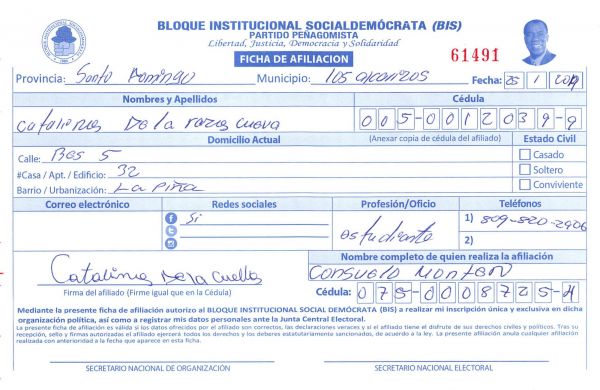 BLOQUE INSTITUCIONAL SOCIALDEMÓCRATA (BIS)
PARTIDO PEÑAGOMISTA
Libertad, Justicia, Democracia y Solidaridad
FICHA DE AFILIACION
61491
Provincia: Santo Domingo Municipio: Los alcarrizos Fecha: 25 1 2019
Nombres y Apellidos Cédula
Catalina De la rosa cueva 005-0012039-9
Domicilio Actual (Anexar copia de cédula del afiliado) Estado Civil
Calle: Bes 5 Casado
#Casa / Apt. / Edificio: 32 Soltero
Barrio / Urbanización: La Piña Conviviente
Correo electrónico Redes sociales Profesión/Oficio Teléfonos
Si estudiante 1) 809-820-2906
2)
Nombre completo de quien realiza la afiliación
Catalina De la Consuelo Montero
Firma del afiliado (Firme igual que en la Cédula) Cédula: 075-0008725-4
Mediante la presente ficha de afiliación autorizo al BLOQUE INSTITUCIONAL SOCIAL DEMÓCRATA (BIS) a realizar mi inscripción única y exclusiva en dicha
organización política, así como a registrar mis datos personales ante la Junta Central Electoral.
La presente ficha de afiliación es válida si los datos ofrecidos por el afiliado son correctos, las declaraciones veraces y si el afiliado tiene el disfrute de sus derechos civiles y políticos. Tras su
recepción, sello y firmas autorizadas el afiliado ejercerá todos los derechos y los deberes estatutariamente sancionados, de acuerdo a la ley. La presente afiliación anula cualquier afiliación
realizada con anterioridad a la fecha que aparece en esta ficha.
SECRETARIO NACIONAL DE ORGANIZACIÓN SECRETARIO NACIONAL ELECTORAL